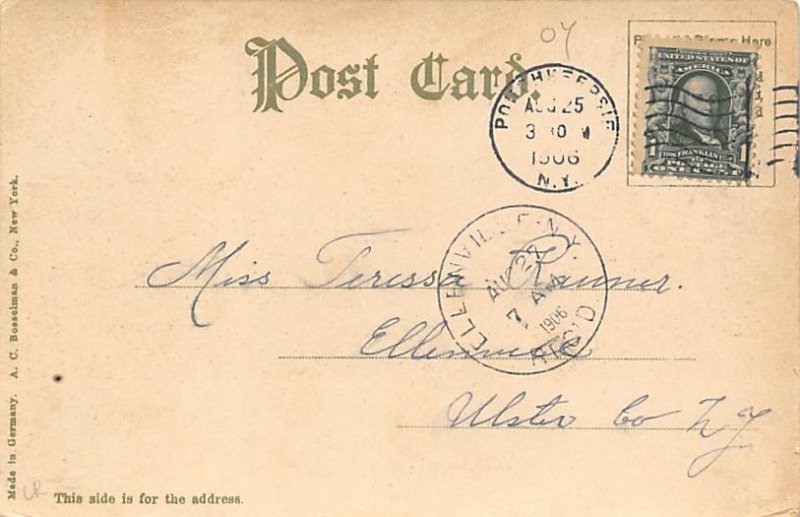 04
Post Card.
POUGHKEEPSIE
AUG 25
3 30 M
1906
N.Y.
UNITED STATES OF
AMERICA
FRANKLIN
1 1
Here
ELLENVILLE N.Y.
AUG 27
7 AM
1906
REC'D.
Miss Teressa Rauner.
Ellenville
Ulster Co N.Y
Made in Germany. A. C. Bosselman & Co., New York.
LR
This side is for the address.